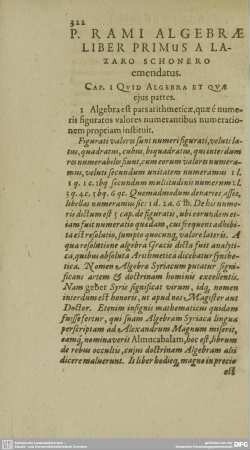 322
P. RAMI ALGEBRÆ
LIBER PRIMUS A LA-
ZARO SCHONERO
emendatus.
CAP. I QVID ALGEBRA ET QVÆ
ejus partes.
1 Algebra est pars arithmeticæ, quæ è nume-
ris figuratis valores numerantibus numeratio-
nem propriam instituit.
Figurati valores sunt numeri figurati, veluti la-
tus, quadratus, cubus, biquadratus, qui interdum
ros numerabiles fiunt, cum eorum valores numera-
mus, veluti secundum unitatem numeramus 1 l
1 q. 1 c. 1bq secundum multitudinis numerum 2 l
3 q. 4 c. 5 bq. 6 qc. Quemadmodum denarios, asses,
libellas numeramus sic: 1 d. 2 a. 6 lb. De his nume-
ris dictum est 5 cap. de figuratis, ubi eorundem et-
iam fuit numeratio quædam, cui frequens adhibi-
ta est resolutio, sumpto quocunq, valore lateris. A
qua resolutione algebra Græcis dicta fuit analyti-
ca, quibus absoluta Arithmetica dicebatur synthe-
tica. Nomen Algebra Syriacum putatur signi-
ficans artem & doctrinam hominis excellentis.
Nam geber Syris significat virum, idq, nomen
interdum est honoris, ut apud nos Magister aut
Doctor. Etenim insignis mathematicus quidam
fuisse fertur, qui suam Algebram Syriaca lingua
perscriptam ad Alexandrum Magnum miserit,
eamq, nominaverit Almucabalam, hoc est, librum
de rebus occultis, cujus doctrinam Algebram alii
dicere maluerunt. Is liber hodieq, magno in precio
est